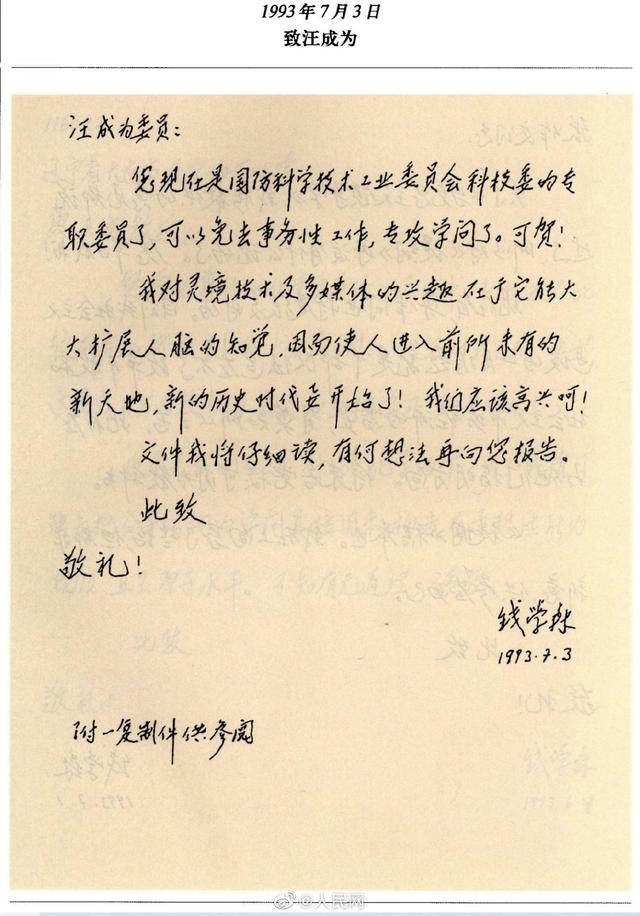 1993年7月3日
致汪成为
汪成为委员：
您现在是国防科学技术工业委员会科技委的专
职委员了，可以免去事务性工作，专攻学问了。可贺！
我对灵境技术及多媒体的兴趣在于它能大
大扩展人脑的知觉，因而使人进入前所未有的
新天地，新的历史时代要开始了！我们应该高兴呵！
文件我将仔细读，有何想法再向您报告。
此致
敬礼！
钱学森
1993.7.3
附一复制件供参阅
@人民网